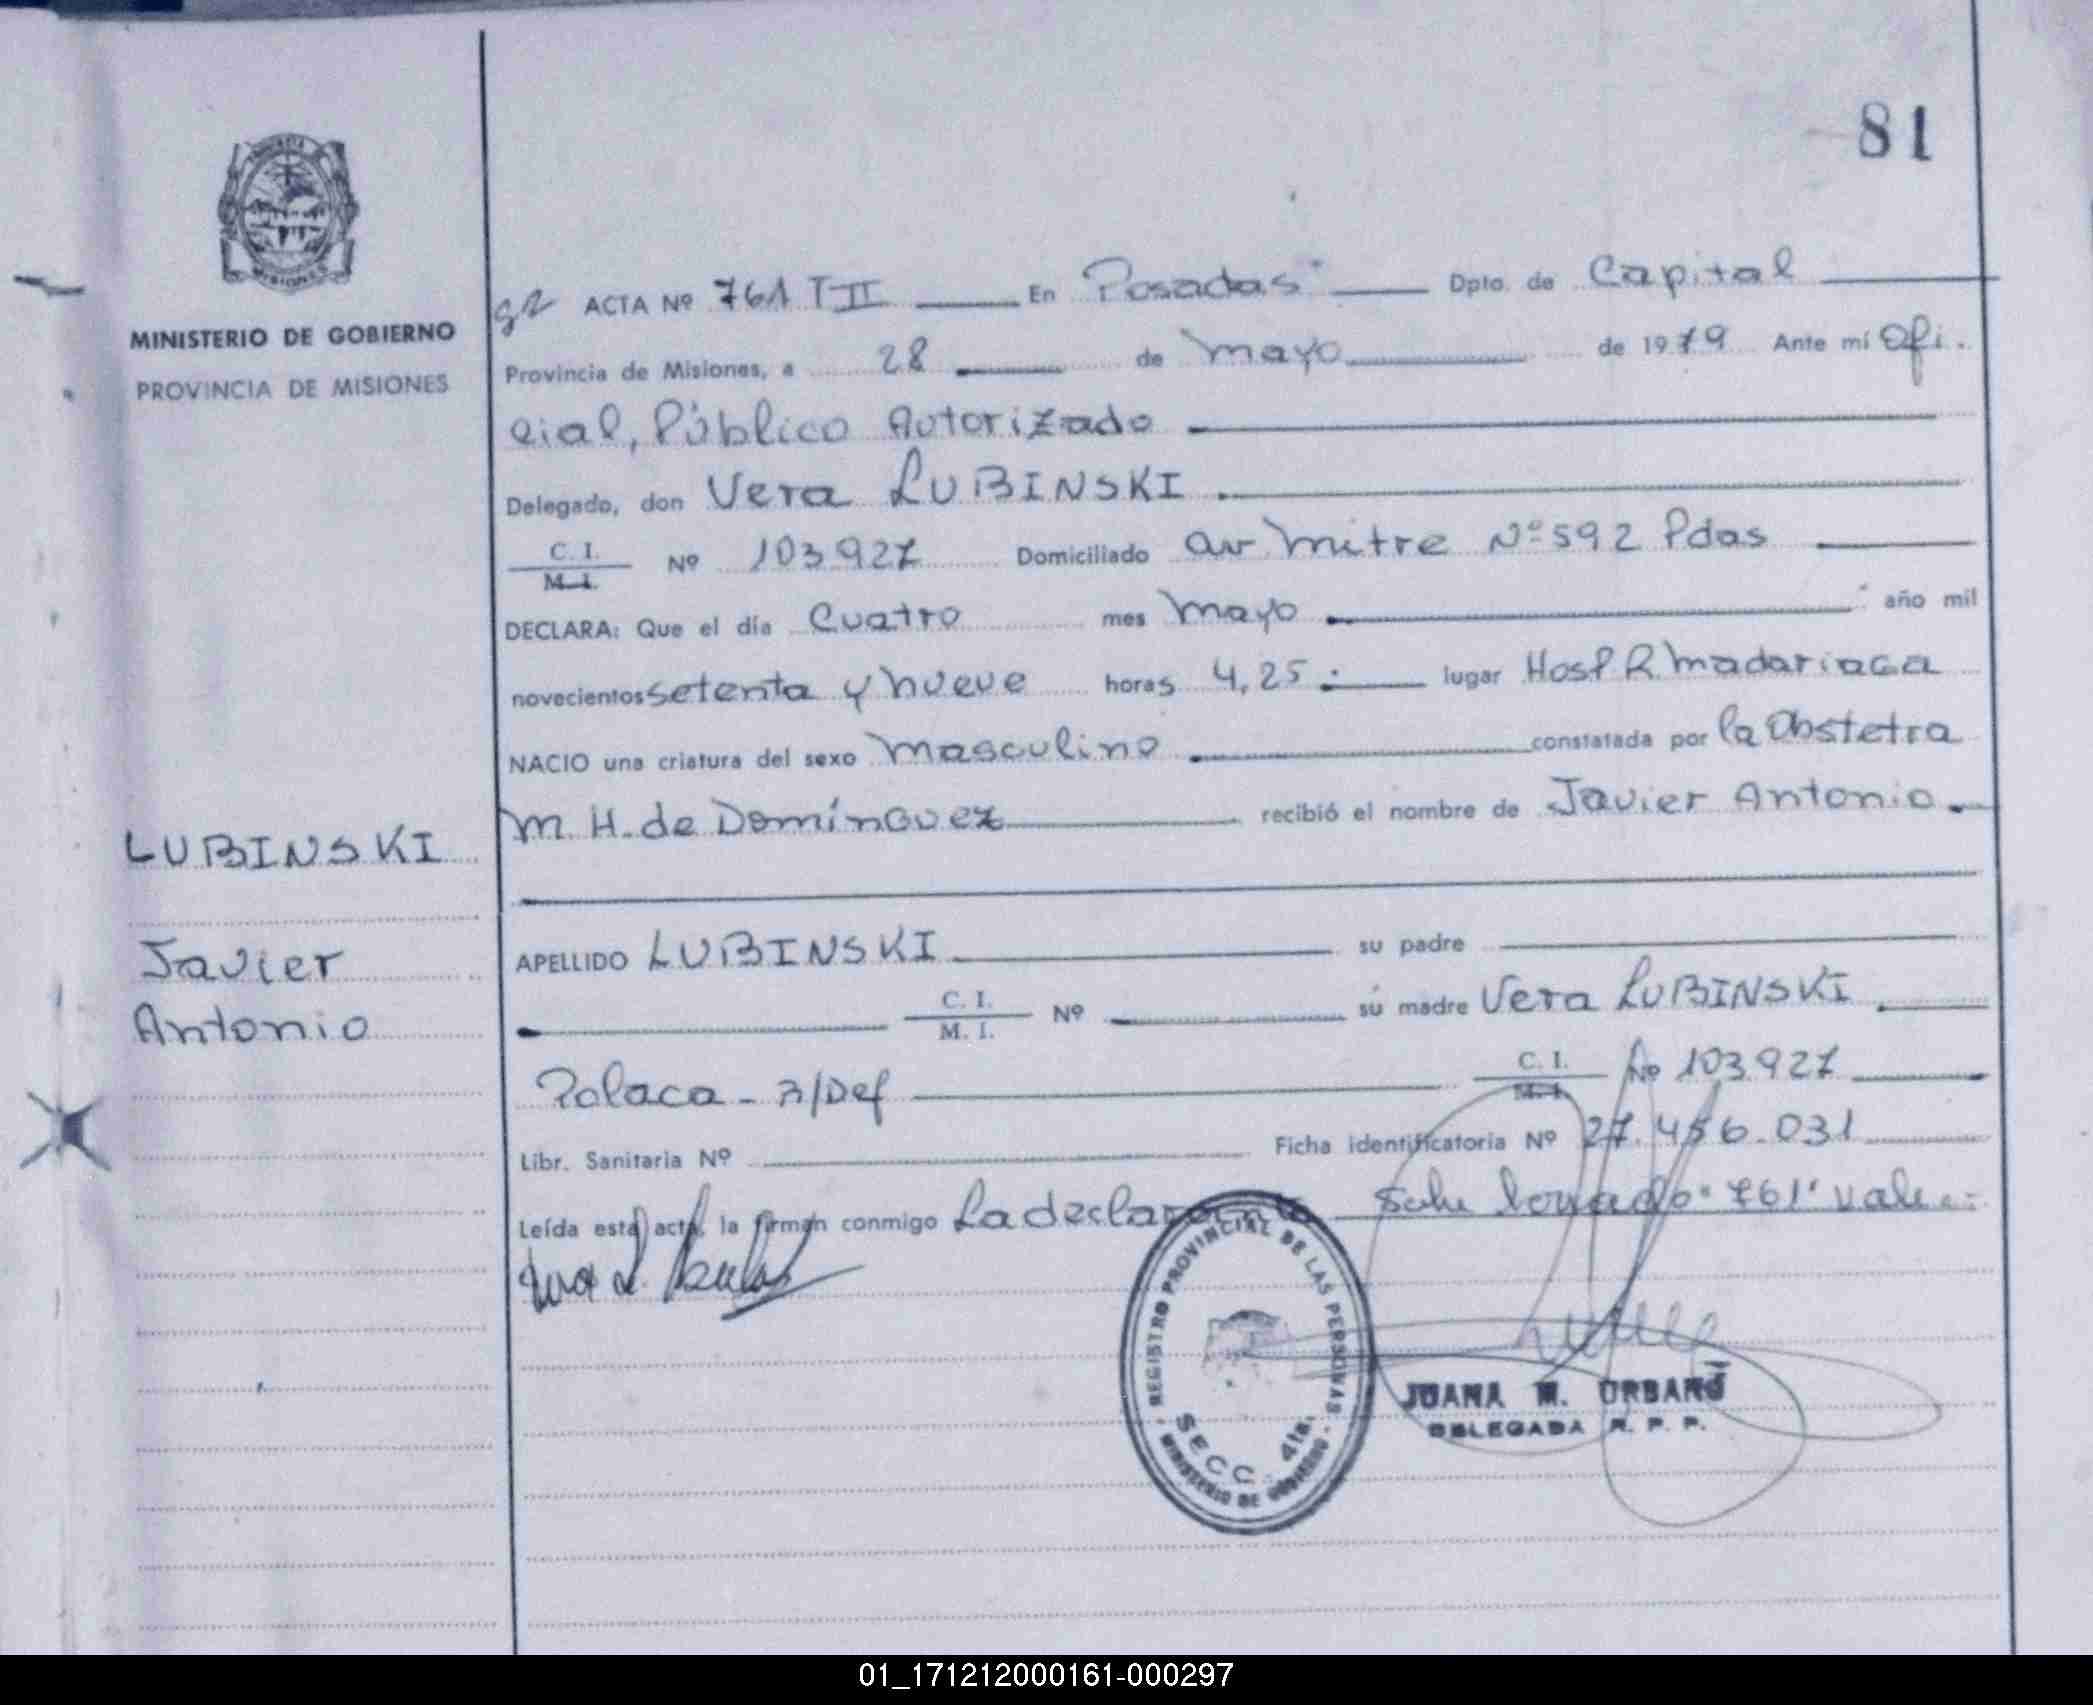 81
MINISTERIO DE GOBIERNO
PROVINCIA DE MISIONES
ACTA Nº 761 T II En Posadas Dpto. de Capital
Provincia de Misiones, a 28 de mayo de 1979 Ante mí Ofi.
cial, Público Autorizado
Delegado, don Vera LUBINSKI
C. I. / M. I. Nº 103927 Domiciliado av mitre Nº 592 Pdas
DECLARA: Que el día Cuatro mes mayo año mil
novecientos setenta y nueve horas 4,25 lugar Hosp R. madariaga
NACIO una criatura del sexo masculino constatada por la Obstetra
M. H. de Domínguez recibió el nombre de Javier Antonio
LUBINSKI
Javier
Antonio
APELLIDO LUBINSKI su padre
C. I. / M. I. Nº su madre Vera LUBINSKI
Polaca - R/Def C. I. / M. I. Nº 103927
Libr. Sanitaria Nº Ficha identificatoria Nº 27.456.031
Leída esta acta, la firman conmigo La declarante 761 vale
REGISTRO PROVINCIAL DE LAS PERSONAS
SECC. 4ta.
MINISTERIO DE GOBIERNO
JUANA M. URBANO
DELEGADA R. P. P.
01_171212000161-000297